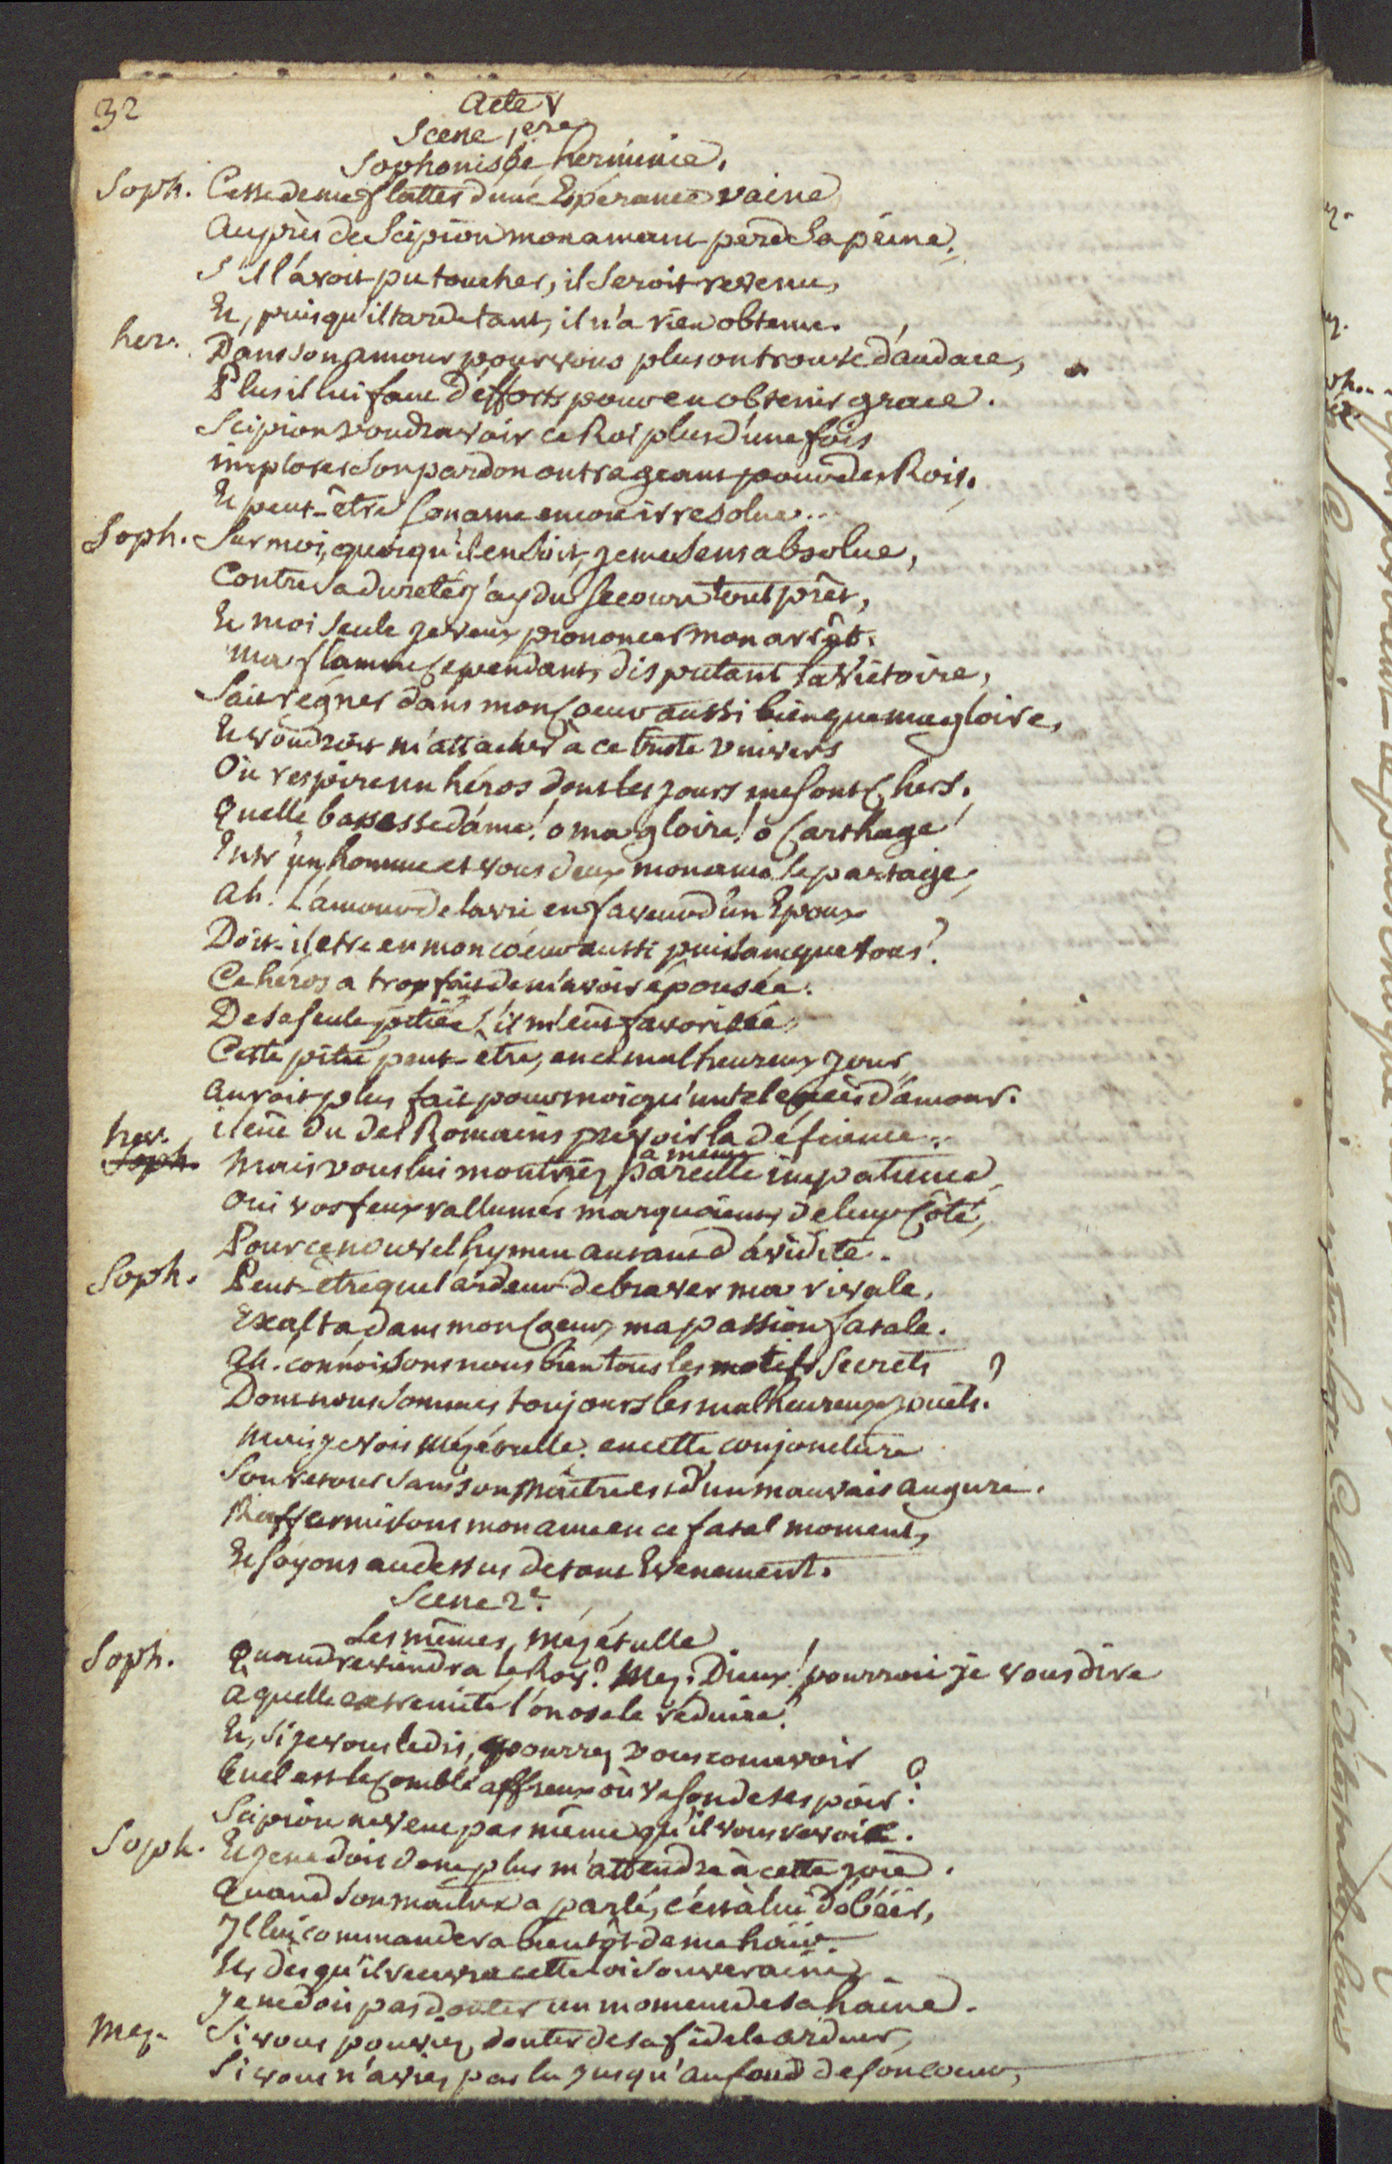 32
Acte V
Scene 1ere
Sophonisbe, herminie.
Soph. Cesse de me flatter d'une Espérance vaine
Auprès de Scipion mon amant perd sa peine.
S'il l'avoit pu toucher, il seroit revenu,
Et, puisqu'il tarde tant, il n'a rien obtenu.
her. Dans son amour pour vous plus on trouve d'audace,
Plus il lui faut d'efforts pour en obtenir grace.
Scipion voudra voir ce Roi plus d'une fois
implorer son pardon outrageant pour des Rois.
Et peut-être son ame encore irresolue...
Soph. Sur moi, quoiqu'il en soit, je me sens absolue,
Contre sa dureté j'ay du secours tout prêt,
Et moi seule je veux prononcer mon arrêt.
ma flamme cependant, disputant la victoire,
Sait régner dans mon coeur aussi bien que ma gloire,
Et voudroit m'attacher à ce triste univers
Où respire un héros dont les jours me sont chers.
Quelle bassesse d'ame! o ma gloire! o Carthage!
Entr'un homme et vous deux mon ame se partage,
Ah! L'amour de la vie en faveur d'un Epoux
Doit-il etre en mon coeur aussi puissant que vous?
Ce héros a trop fait de m'avoir épousée.
De sa seule pitié s'il m'eut favorisée,
Cette pitié peut-être, en ce malheureux jour,
auroit plus fait pour moi qu'un tel excès d'amour.
il eut du des Romains prévoir la défiance...
her. Soph. Mais vous lui montriez pareille impatience
a meme
Oui vos feux rallumés marquoient, de leur Côté,
Pour ce nouvel hymen autant d'avidité.
Soph. Peut-être que l'ardeur de braver ma rivale,
Exalta dans mon coeur, ma passion fatale.
Ah. connoissons nous bien tous les motifs secrets
Dont nous sommes toujours les malheureux jouets?
Mais je vois Mézétulle. en cette conjoncture
Son retour sans son Maître est d'un mauvais augure.
Raffermissons mon ame en ce fatal moment,
Et soyons au dessus de tout Evenement.
Scene 2e.
Les mêmes, Mézétulle
Soph. Quand reviendra le Roy? Mez. Dieux! pourrai je vous dire
a quelle extremité l'on ose le réduire?
Et, si je vous le dis, pourrez vous concevoir
Quel est le comble affreux où va son desespoir?
Scipion ne veut pas même qu'il vous revoie.
Soph. Et je ne dois donc plus m'attendre à cette joie.
Quand son maitre a parlé, c'est à lui d'obéir,
Il lui commandera bientôt de me haïr.
Et, des qu'il recevra cette loi souveraine
Je ne dois pas douter un moment de sa haine.
Mez. Si vous pouviez douter de sa fidele ardeur,
Si vous n'aviez pas lu jusqu'au fond de son coeur,